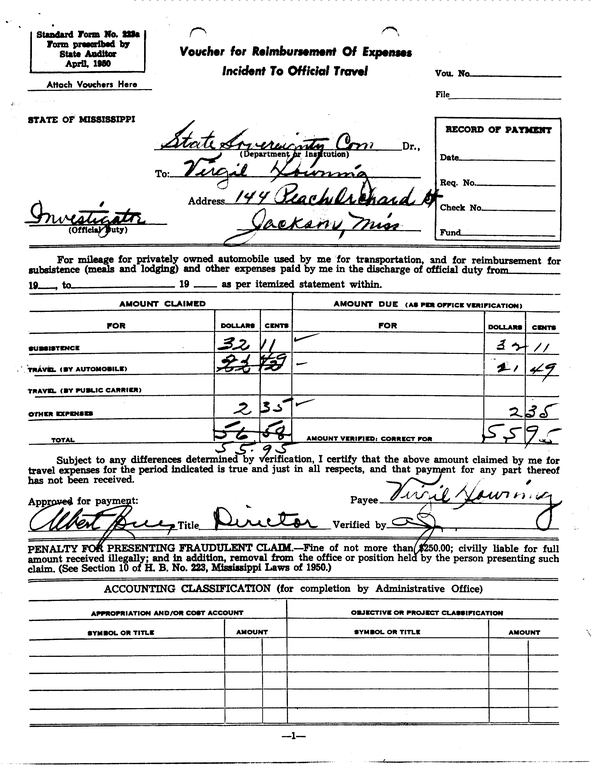 Standard Form No. 223a
Form prescribed by
State Auditor
April, 1950
Attach Vouchers Here
Voucher for Reimbursement Of Expenses
Incident To Official Travel
Vou. No.
File
STATE OF MISSISSIPPI
State Sovereignty Com Dr.,
(Department or Institution)
To: Virgil Downing
Address 144 Peach Orchard St
Jackson, Miss
Investigator
(Official Duty)
RECORD OF PAYMENT
Date
Req. No.
Check No.
Fund
For mileage for privately owned automobile used by me for transportation, and for reimbursement for
subsistence (meals and lodging) and other expenses paid by me in the discharge of official duty from
19 , to 19 as per itemized statement within.
AMOUNT CLAIMED AMOUNT DUE (AS PER OFFICE VERIFICATION)
FOR DOLLARS CENTS FOR DOLLARS CENTS
SUBSISTENCE 32 11 32 11
TRAVEL (BY AUTOMOBILE) 49 21 49
TRAVEL (BY PUBLIC CARRIER)
OTHER EXPENSES 2 35 2 35
TOTAL 56 58 AMOUNT VERIFIED: CORRECT FOR 55 95
55.95
Subject to any differences determined by verification, I certify that the above amount claimed by me for
travel expenses for the period indicated is true and just in all respects, and that payment for any part thereof
has not been received.
Payee Virgil Downing
Approved for payment:
Albert Title Director Verified by
PENALTY FOR PRESENTING FRAUDULENT CLAIM.—Fine of not more than $250.00; civilly liable for full
amount received illegally; and in addition, removal from the office or position held by the person presenting such
claim. (See Section 10 of H. B. No. 223, Mississippi Laws of 1950.)
ACCOUNTING CLASSIFICATION (for completion by Administrative Office)
APPROPRIATION AND/OR COST ACCOUNT OBJECTIVE OR PROJECT CLASSIFICATION
SYMBOL OR TITLE AMOUNT SYMBOL OR TITLE AMOUNT
—1—